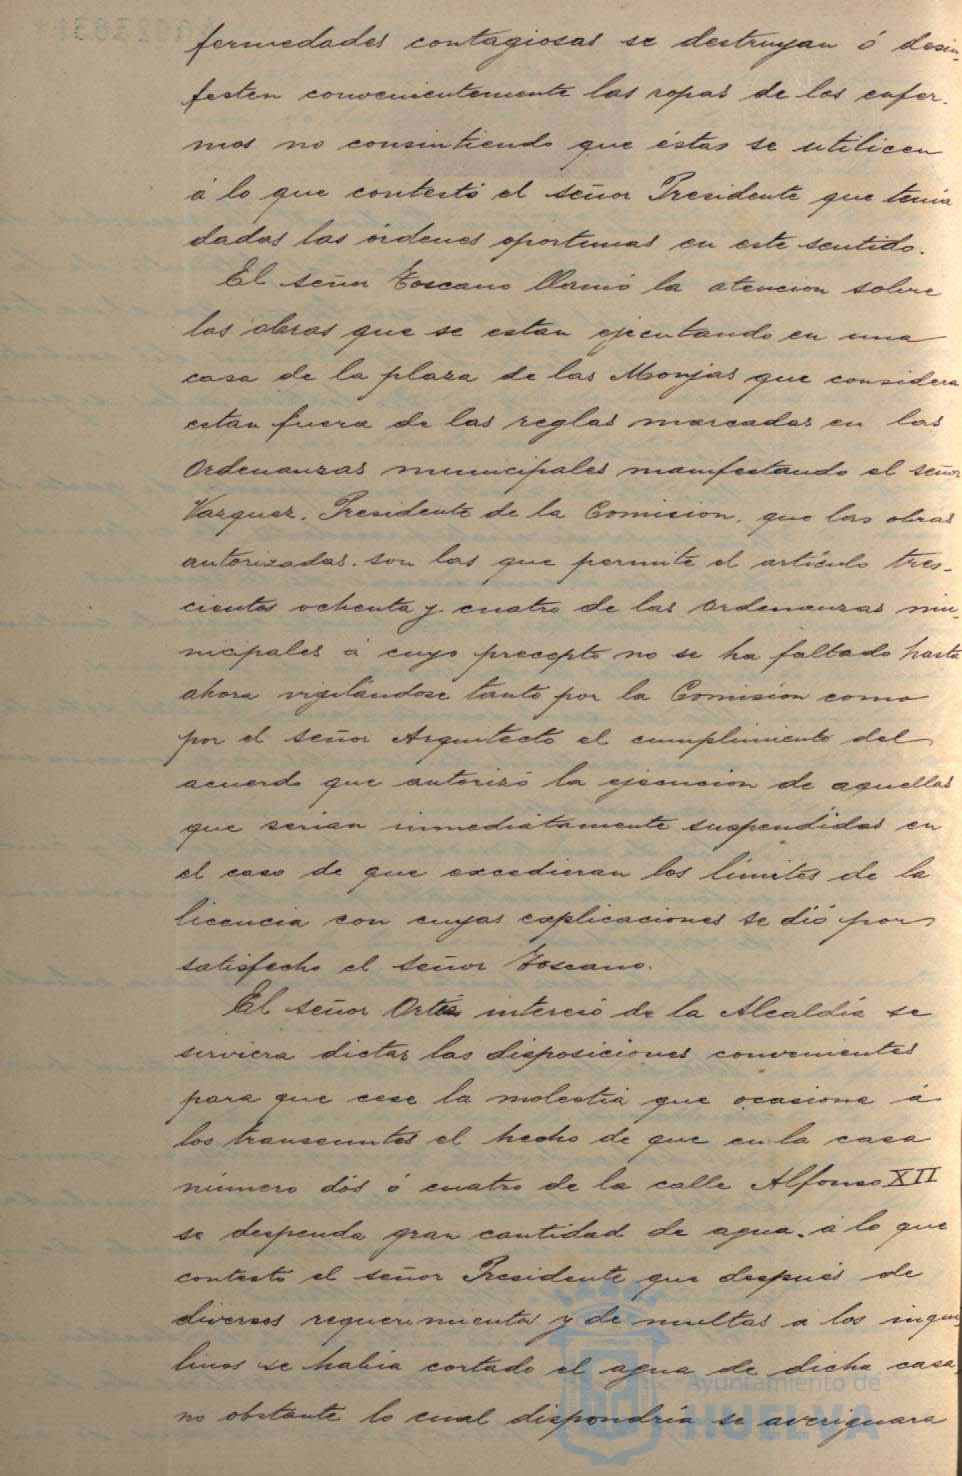 fermedades contagiosas se destruyan ó desin-
festen convenientemente las ropas de los enfer-
mos no consintiendo que éstas se utilicen
á lo que contestó el señor Presidente que tenia
dadas las órdenes oportunas en este sentido.
El señor Toscano llamó la atencion sobre
las obras que se estan ejecutando en una
casa de la plaza de las Monjas que considera
estan fuera de las reglas marcadas en las
Ordenanzas municipales manifestando el señor
Vazquez, Presidente de la Comision, que las obras
autorizadas, son las que permite el artículo tres-
cientos ochenta y cuatro de las Ordenanzas mu-
nicipales á cuyo precepto no se ha faltado hasta
ahora vigilándose tanto por la Comisión como
por el señor Arquitecto el cumplimiento del
acuerdo que autorizó la ejecucion de aquellas
que serian inmediatamente suspendidas en
el caso de que excedieran los límites de la
licencia con cuyas explicaciones se dió por
satisfecho el señor Toscano.
El señor Ortiz interesó de la Alcaldía se
sirviera dictar las disposiciones convenientes
para que cese la molestia que ocasiona á
los transeuntes el hecho de que en la casa
número dós ó cuatro de la calle Alfonso XII
se despenda gran cantidad de agua, á lo que
contestó el señor Presidente que después de
diversos requerimientos y de multas a los inqui-
linos se habia cortado el agua de dicha casa,
no obstante lo cual dispondría se averiguara
Ayuntamiento de
HUELVA